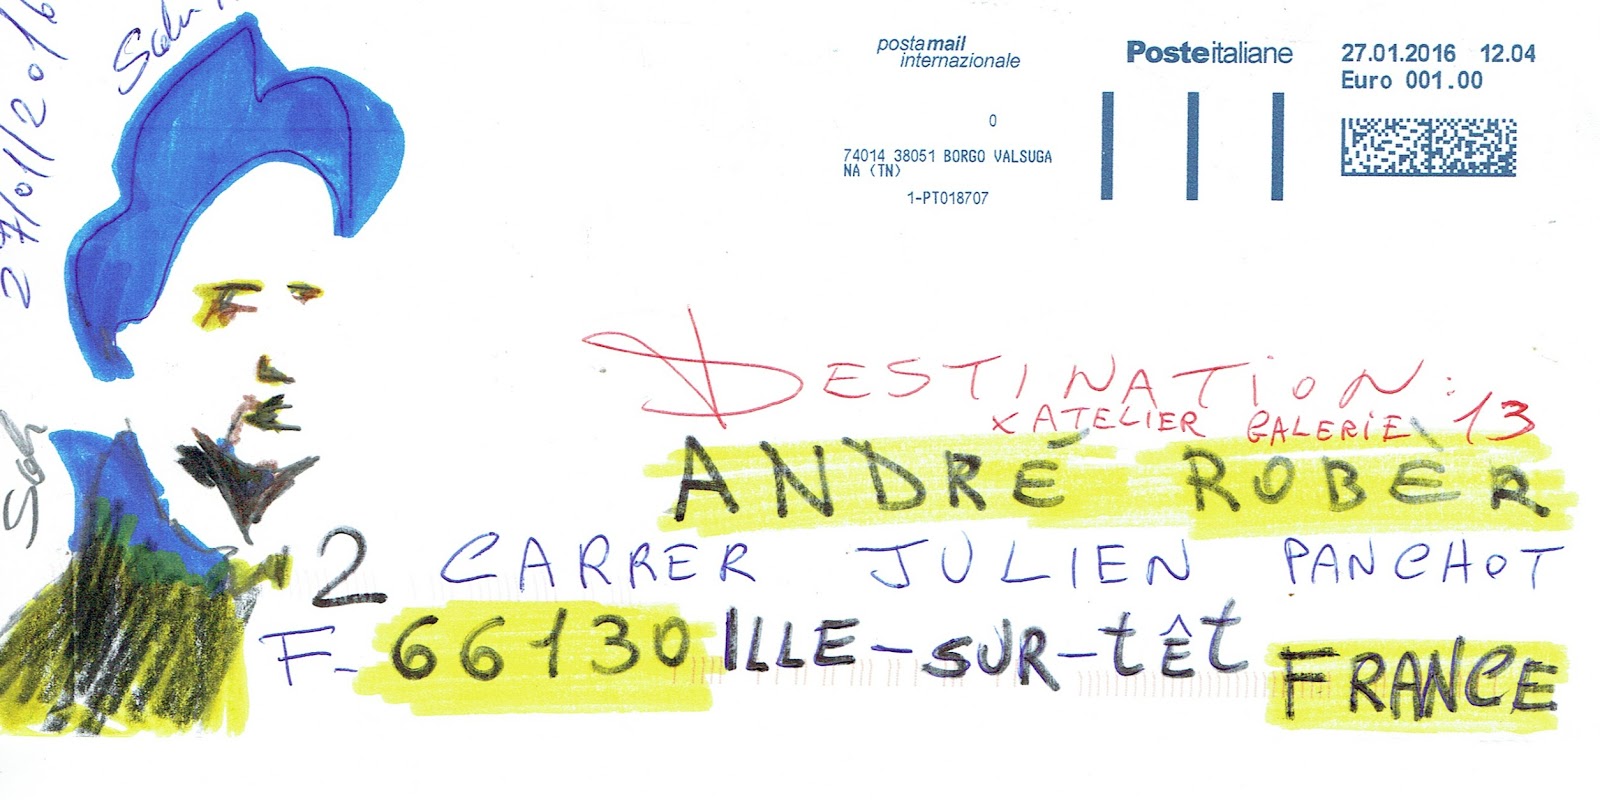 27/01/2016
posta mail
internazionale
Posteitaliane
27.01.2016 12.04
Euro 001.00
0
74014 38051 BORGO VALSUGA
NA (TN)
1-PT018707
DESTINATION:
x ATELIER GALERIE 13
ANDRÉ ROBÈR
2 CARRER JULIEN PANCHOT
F-66130 ILLE-SUR-TÊT
FRANCE